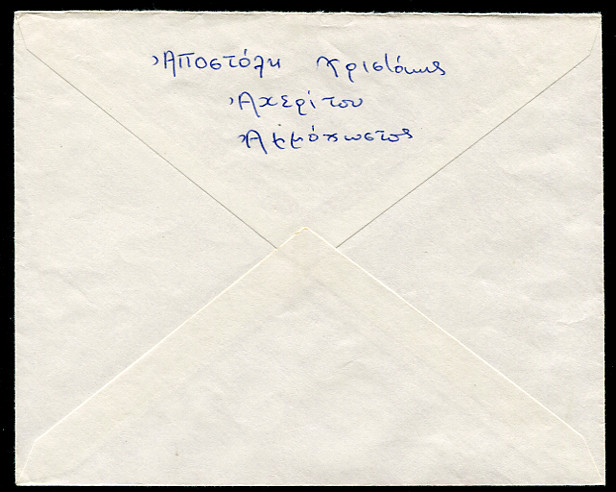 Ἀποστόλη Χριστάκης
Ἀχερίτου
Ἀμμόχωστος